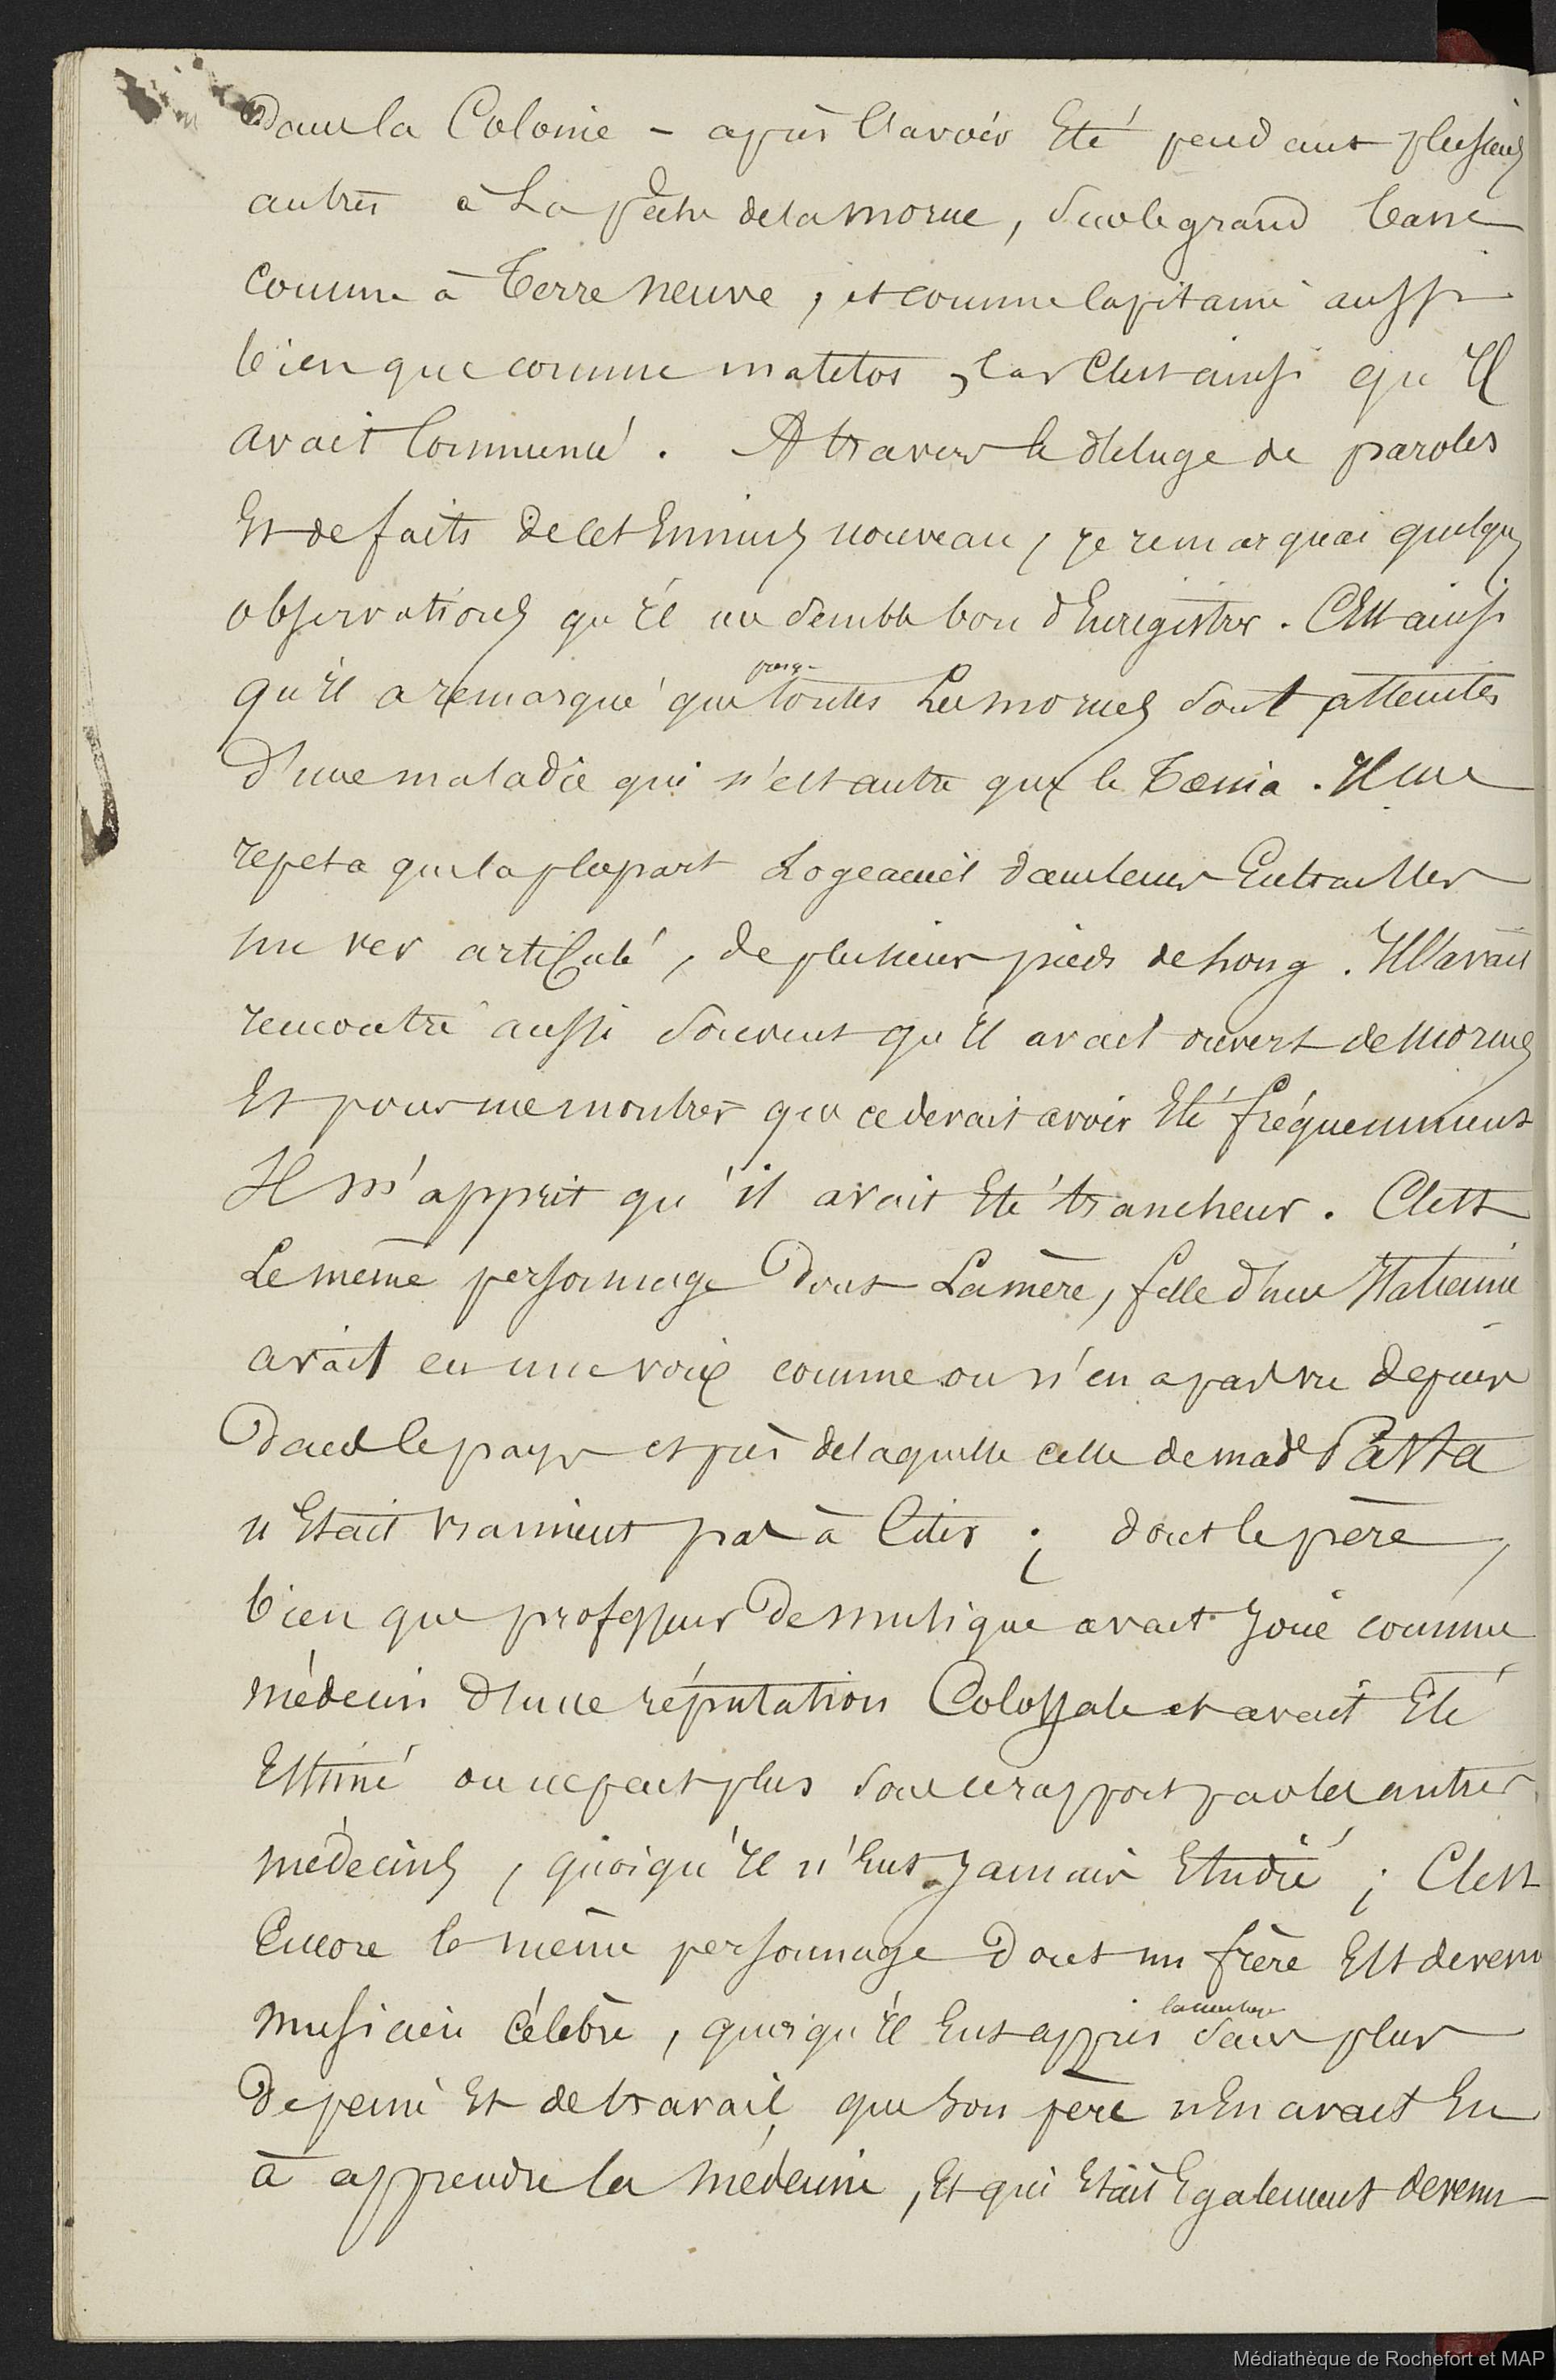 Dans la Colonie – après l'avoir Eté pendant plusieurs
autres à La pêche de la morue, sur le grand banc
comme à Terre neuve, et comme Capitaine aussi
bien que comme matelos, Car C'est ainsi qu'Il
avait Commencé. A travers le déluge de paroles
Et de faits de cet nouveau, je remarquai quelques
observations qu'il me semble bon d'Enregistrer. C'Est ainsi
qu'il a remarqué que presq. toutes Les morues sont atteintes
d'une maladie qui n'est autre que le Tœnia. Il me
repeta que la plupart Logeaient dans leurs Entrailles
un ver articulé, de plusieurs pieds de Long. Il l'avait
rencontré aussi souvent qu'il avait ouvert de morues
Et pour me montrer que ce devait avoir Eté fréquemment
Il m'apprit qu'il avait Eté trancheur. C'est
Le même personnage Dont La mère, fille d'une Italienne
avait eu une voix comme on n'en a pas vu depuis
Dans le pays et près de laquelle celle de made Pasta
n'Etait vraiment pas à Citer ; dont le père,
bien que professeur De musique avait joué comme
médecin d'une réputation Colossale et avait Eté
Estimé on ne peut plus sous ce rapport par les autres
médecins, quoiqu'Il n'Eut jamais Etudié ; C'est
Encore le même personnage Dont un frère Est devenu
musicien célèbre, quoiqu'il Eut appris la musique sans plus
De peine Et de travail, que Son père n'En avait Eu
à apprendre la médecine, Et qui Etait Egalement devenu
Médiathèque de Rochefort et MAP